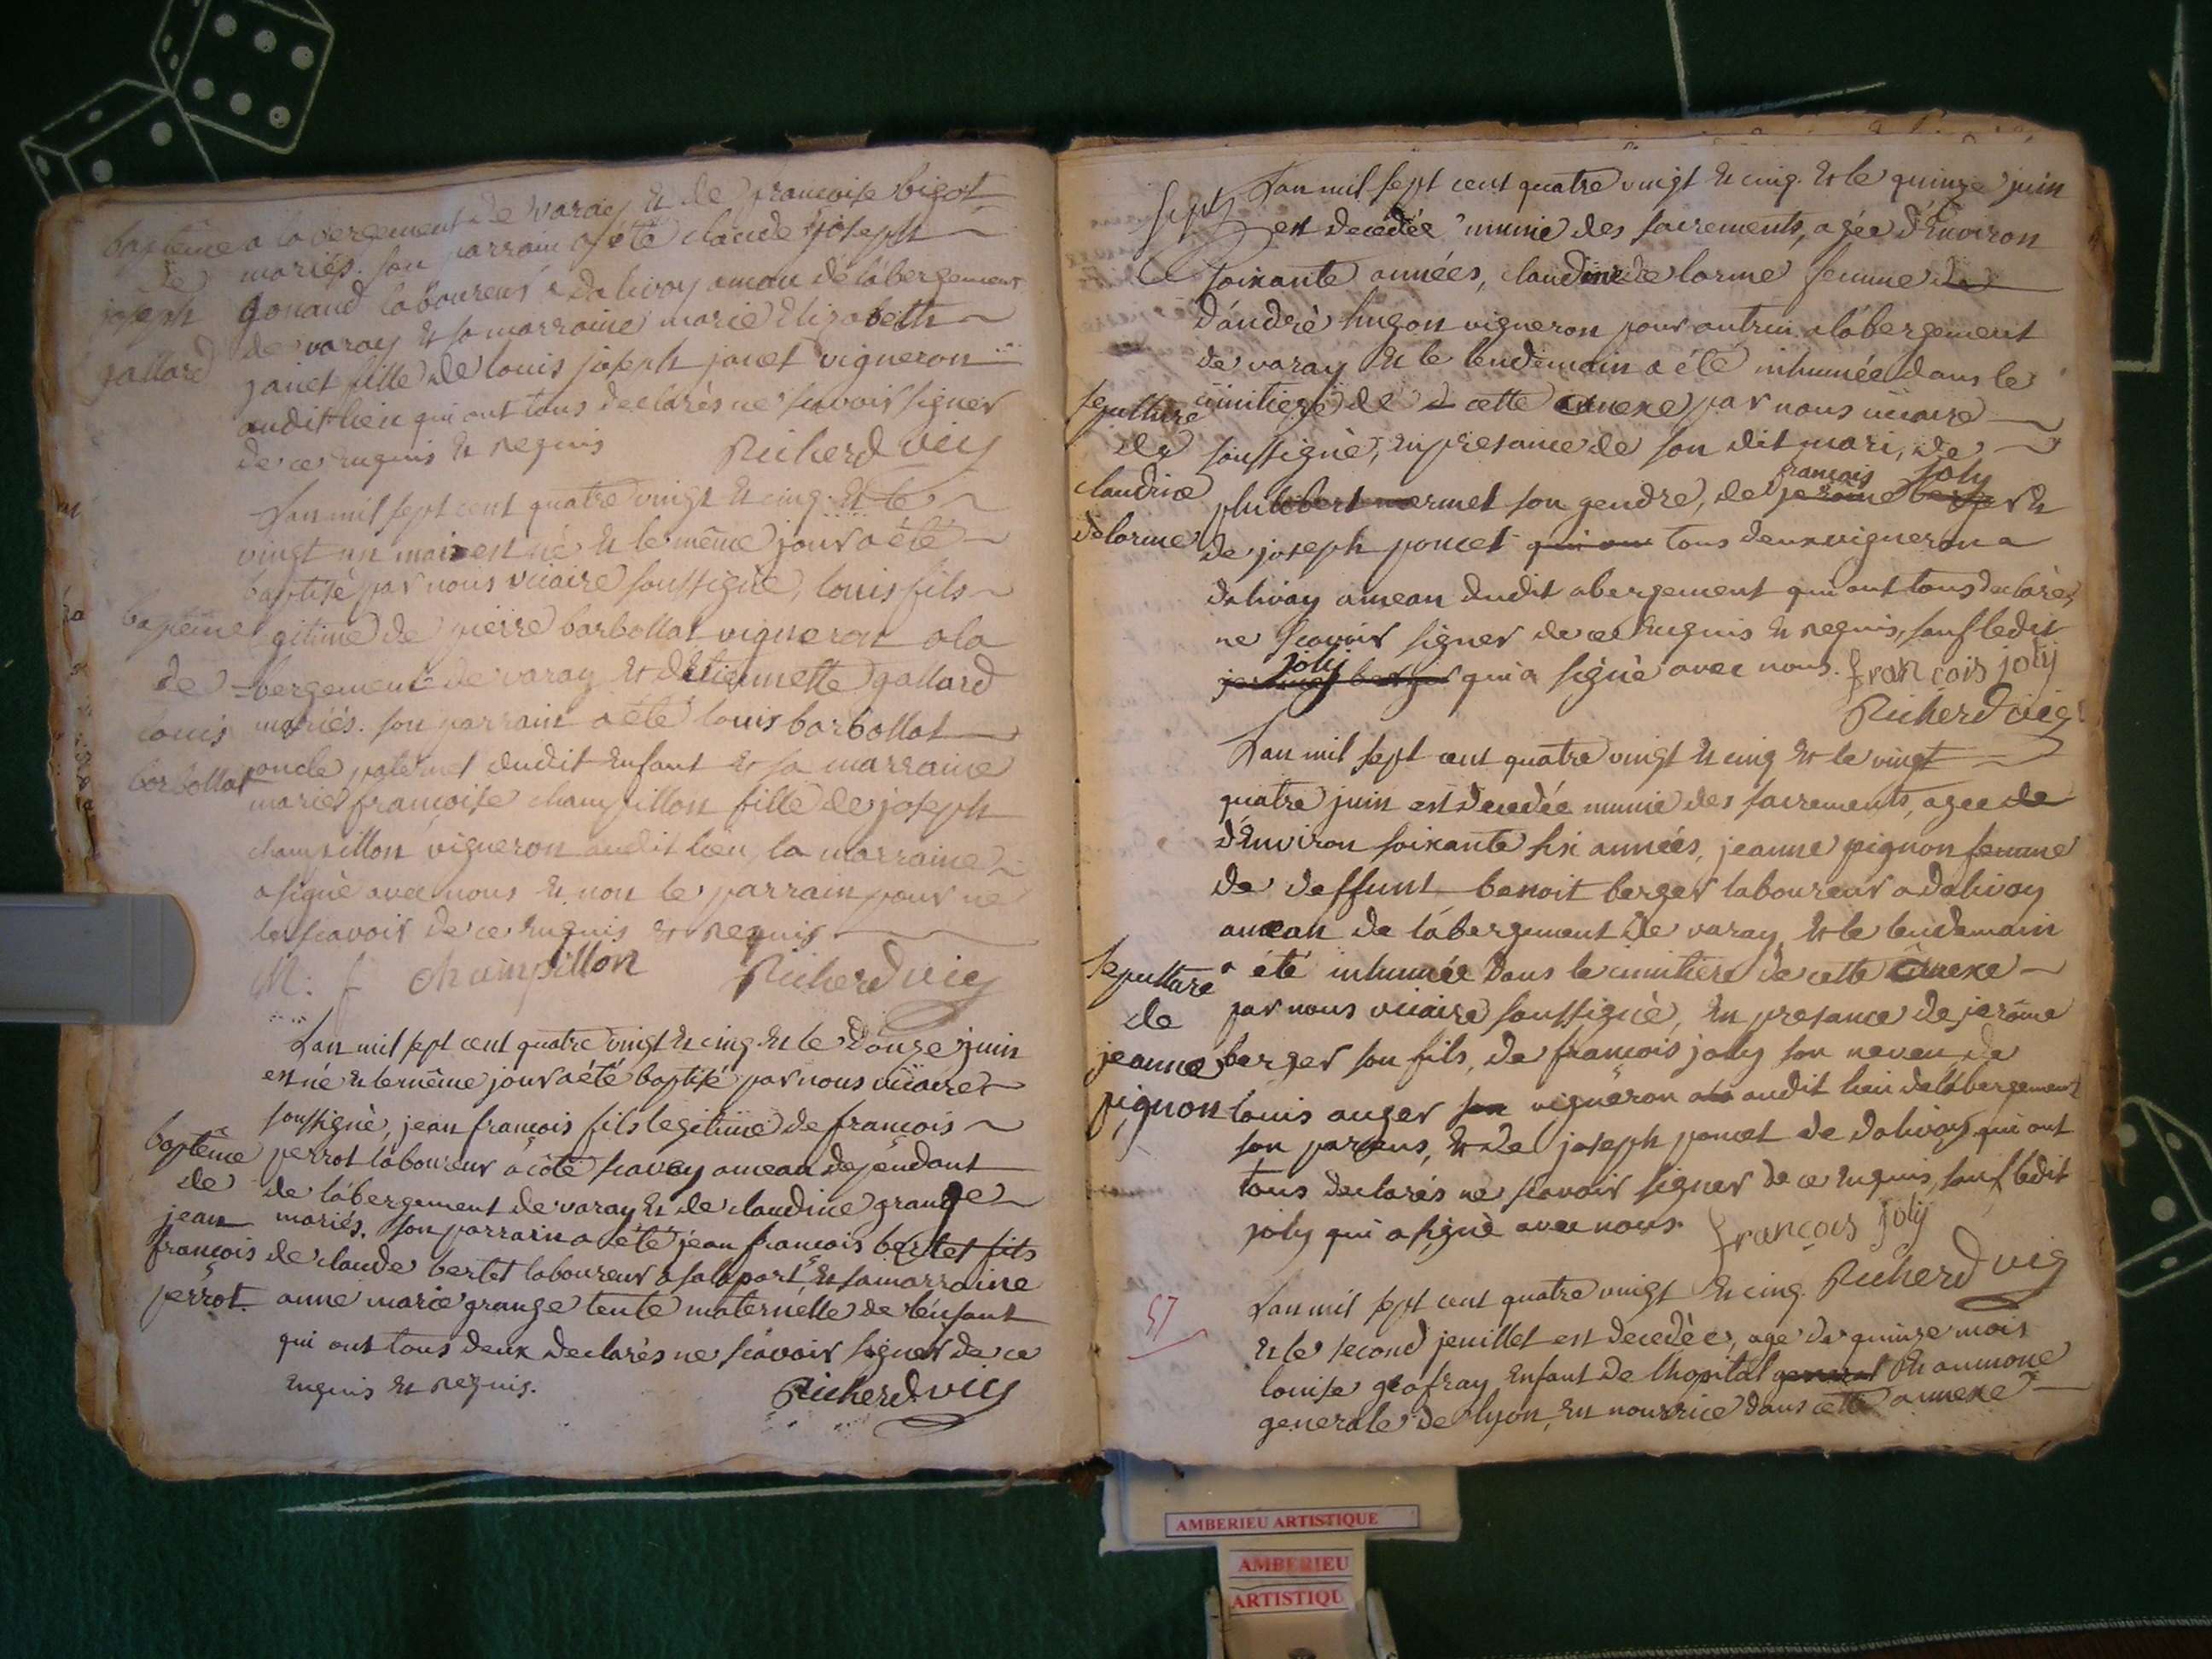 baptême
de
joseph
gallard
a labergement de varay et de francoise bigot
mariés. son parrain a été claude joseph
gonand laboureur a dalivoy amau de labergement
de varay et sa marraine marie elizabeth
janet fille de louis joseph janet vigneron
audit lieu qui ont tous declarés ne scavoir signer
de ce enquis et requis
Richerd vic
baptême
de
louis
borbollat
Lan mil sept cent quatre vingt et cinq et le
vingt un mai est né et le même jour a été
baptisé par nous vicaire soussigné, louis fils
gitime de pierre borbollat vigneron a la
=bergement de varay et detiennette gallard
mariés. son parrain a été louis borbollat
oncle paternel dudit enfant et sa marraine
marie francoise champillon fille de joseph
champillon vigneron audit lieu, la marraine
a signé avec nous et non le parrain pour ne
le scavoir de ce enquis et requis
M: f champillon Richerd vic
baptême
de
jean
francois
perrot.
Lan mil sept cent quatre vingt et cinq et le douze juin
est né et le même jour a été baptisé par nous vicaire
soussigné, jean francois fils legitime de francois
perrot laboureur a côté savey ameau dependant
de labergement de varay et de claudine grange
mariés. son parrain a été jean francois bertet fils
de claude bertet laboureur a salaport, et sa marraine
anne marie grange tente maternelle de lenfant
qui ont tous deux declarés ne scavoir signer de ce
enquis et requis.
Richerd vic
sept
Lan mil sept cent quatre vingt et cinq. et le quinze juin
est decedée munie des sacrements, agée denviron
soixante années, claudine de lorme femme de
dandré hugon vigneron pour autrui a labergement
de varay et le lendemain a été inhumée dans le
cimitiere de cette annexe par nous vicaire
soussigné, en presance de son dit mari, de
francois joly
philibert mermet son gendre, de jerome berger et
de joseph poncet qui ont tous deux vigneron a
dalivoy ameau dudit abergement qui ont tous declarés
ne scavoir signer de ce enquis et requis, sauf ledit
joly
jerome berger qui a signé avec nous. francois joly
Richerd vic
sepulture
de
claudine
delorme
Lan mil sept cent quatre vingt et cinq et le vingt
quatre juin est decedée munie des sacrements, agee de
denviron soixante six années, jeanne pignon femme
de deffunt benoit berger laboureur a dalivoy
ameau de labergement de varay, et le lendemain
a été inhumée dans le cimitiere de cette annexe
par nous vicaire soussigné, en presance de jerôme
berger son fils, de francois joly son neveu de
louis auger son vigneron audit lieu de labergement
son parens, et de joseph poncet de dalivoy qui ont
tous declarés ne scavoir signer de ce enquis, sauf ledit
joly qui a signé avec nous. francois joly
Richerd vic
sepulture
de
jeanne
pignon
57
Lan mil sept cent quatre vingt et cinq.
et le second jeuillet est decedée, age de quinze mois
louise geofray enfant de lhopital general et aumone
generale de lyon, en nourrice dans cette annexe
AMBERIEU ARTISTIQUE
AMBERIEU
ARTISTIQU